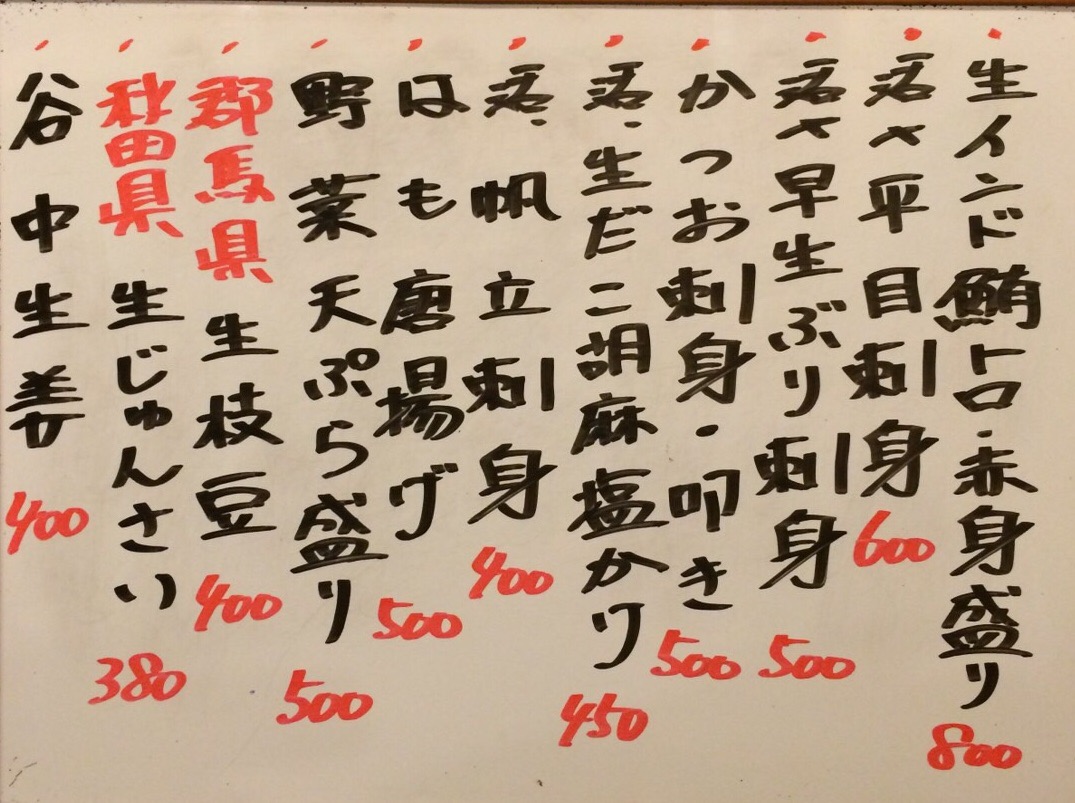 生インド鮪トロ・赤身盛り 800
活〆平目刺身 600
活〆早生ぶり刺身 500
かつお刺身・叩き 500
活・生だこ胡麻塩かけ 450
活・帆立刺身 400
はも唐揚げ 500
野菜天ぷら盛り 500
郡馬県 生枝豆 400
秋田県 生じゅんさい 380
谷中生姜 400